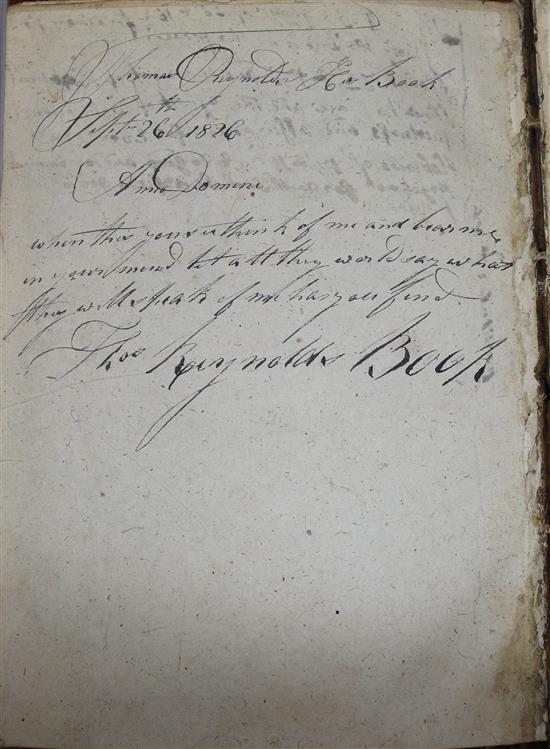 Thomas Reynolds His Book
Sept 26th 1826
Anno Domini
when this you see think of me and bear me
in your mind let all they world say what
they will speak of me has you find
Thos Reynolds Book